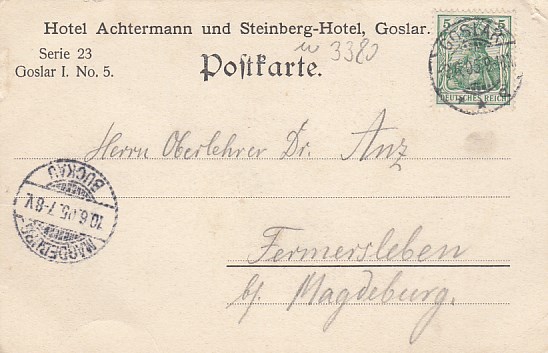 Hotel Achtermann und Steinberg-Hotel, Goslar.
Serie 23
Goslar I. No. 5.
3380
Postkarte.
5 5
GOSLAR
DEUTSCHES REICH
Herrn Oberlehrer Dr. Anz
BUCKAU
10.6.05.7-8V.
MAGDEBURG
Fermersleben
b/. Magdeburg.